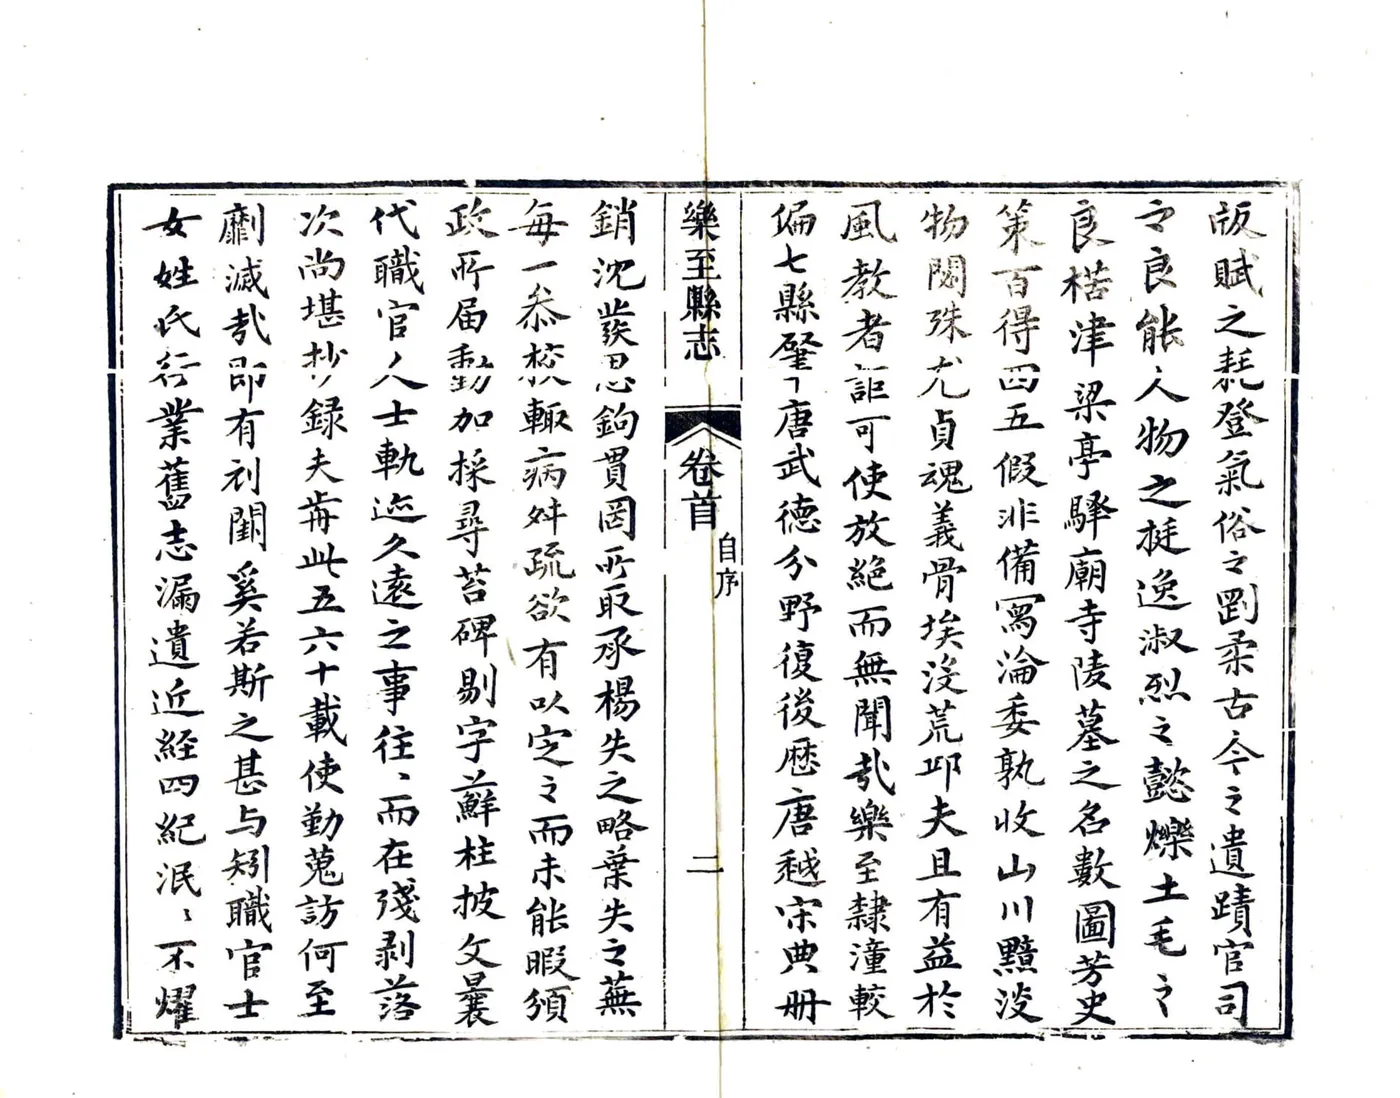 版賦之耗登氣俗之剛柔古今之遺蹟官司
之良能人物之挺逸淑烈之懿爍土毛之
良楛津梁亭驛廟寺陵墓之名數圖芳史
策百得四五假非備寫淪委孰收山川黯沒
物闕殊尤貞魂義骨埃沒荒邱夫且有益於
風教者詎可使放絕而無聞哉樂至隸潼較
偏七縣肇㆒唐武德分野復後歷唐越宋典冊
樂至縣志
卷首
自序
二
銷沈發思鉤貫罔所取承楊失之略葉失之蕪
每一恭校輒病舛疏欲有以定之而未能暇須
政所届動加採尋苔碑剔字蘚柱披文曩
代職官人士軌迹久遠之事往〻而在殘剥落
次尚堪抄錄夫歬此五六十載使勤蒐訪何至
劘滅哉即有利閳奚若斯之甚与矧職官士
女姓氏行業舊志漏遺近經四紀泯〻不燿